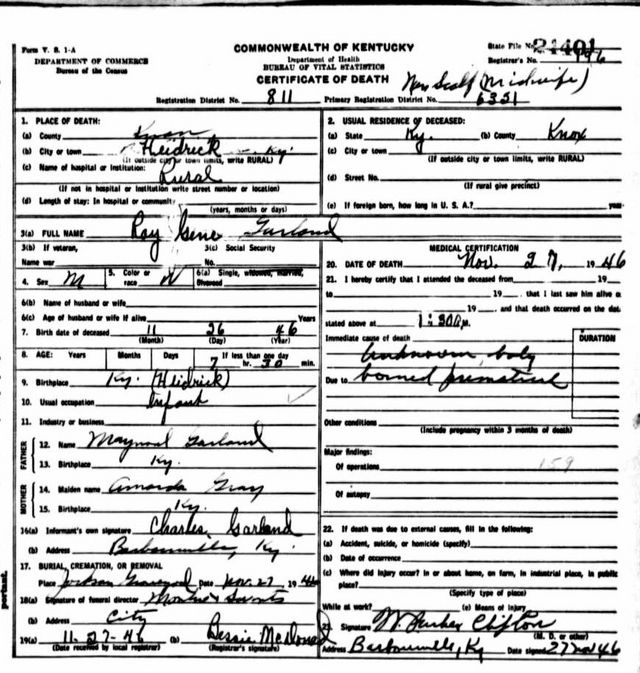 Form V. S. 1-A
COMMONWEALTH OF KENTUCKY
State File No. 24401
DEPARTMENT OF COMMERCE
Bureau of the Census
Department of Health
BUREAU OF VITAL STATISTICS
CERTIFICATE OF DEATH
Registrar's No. 196
(Midwife)
Registration District No. 811 Primary Registration District No. 6351
1. PLACE OF DEATH:
(a) County Knox
(b) City or town Heidrick Ky.
(If outside city or town limits, write RURAL)
(c) Name of hospital or Institution: Rural
(If not in hospital or institution write street number or location)
(d) Length of stay: In hospital or community
(years, months or days)
2. USUAL RESIDENCE OF DECEASED:
(a) State Ky. (b) County Knox
(c) City or town
(If outside city or town limits, write RURAL)
(d) Street No.
(If rural give precinct)
(e) If foreign born, how long in U. S. A.? year
3(a) FULL NAME Roy Gene Garland
3(b) If veteran, 3(c) Social Security
Name war No.
4. Sex M 5. Color or race W 6(a) Single, widowed, married, Divorced
6(b) Name of husband or wife
6(c) Age of husband or wife if alive Years
7. Birth date of deceased 11 26 46
(Month) (Day) (Year)
8. AGE: Years Months Days If less than one day
7 hr. 30 min.
9. Birthplace Ky. (Heidrick)
10. Usual occupation Infant
11. Industry or business
FATHER
12. Name Maynard Garland
13. Birthplace Ky.
MOTHER
14. Maiden name Amanda Gray
15. Birthplace Ky.
16(a) Informant's own signature Charles Garland
(b) Address Barbourville, Ky.
17. BURIAL, CREMATION, OR REMOVAL
Place Graveyard Date Nov. 27, 1946
18(a) Signature of funeral director
(b) Address City
19(a) 11-27-46 (b) Bessie McDonald
(Date received by local registrar) (Registrar's signature)
MEDICAL CERTIFICATION
20. DATE OF DEATH Nov. 27, 1946
21. I hereby certify that I attended the deceased from 19
to 19 , that I last saw him alive o
19 , and that death occurred on the dat
stated above at 1:30 a.m.
Immediate cause of death DURATION
Unknown, baby
Due to borned premature
Other conditions
(Include pregnancy within 3 months of death)
Major findings:
Of operations 159
Of autopsy
22. If death was due to external causes, fill in the following:
(a) Accident, suicide, or homicide (specify)
(b) Date of occurrence
(c) Where did injury occur? In or about home, on farm, in industrial place, in public
place?
(Specify type of place)
While at work? (e) Means of Injury
23. Signature Clifton
(M. D. or other)
Address Barbourville, Ky Date signed
portant.